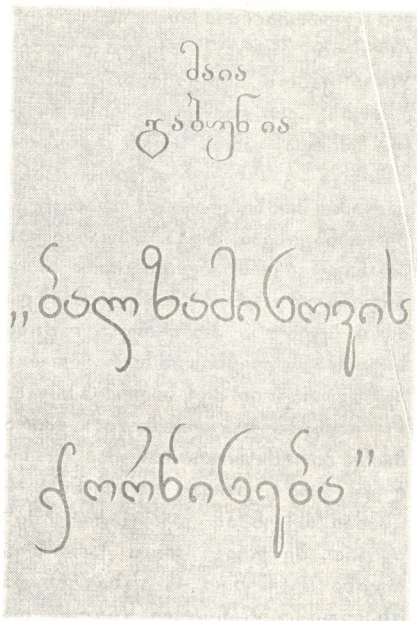 მაია
გაბუნია
„ბალზამინოვის
ქორწინება"